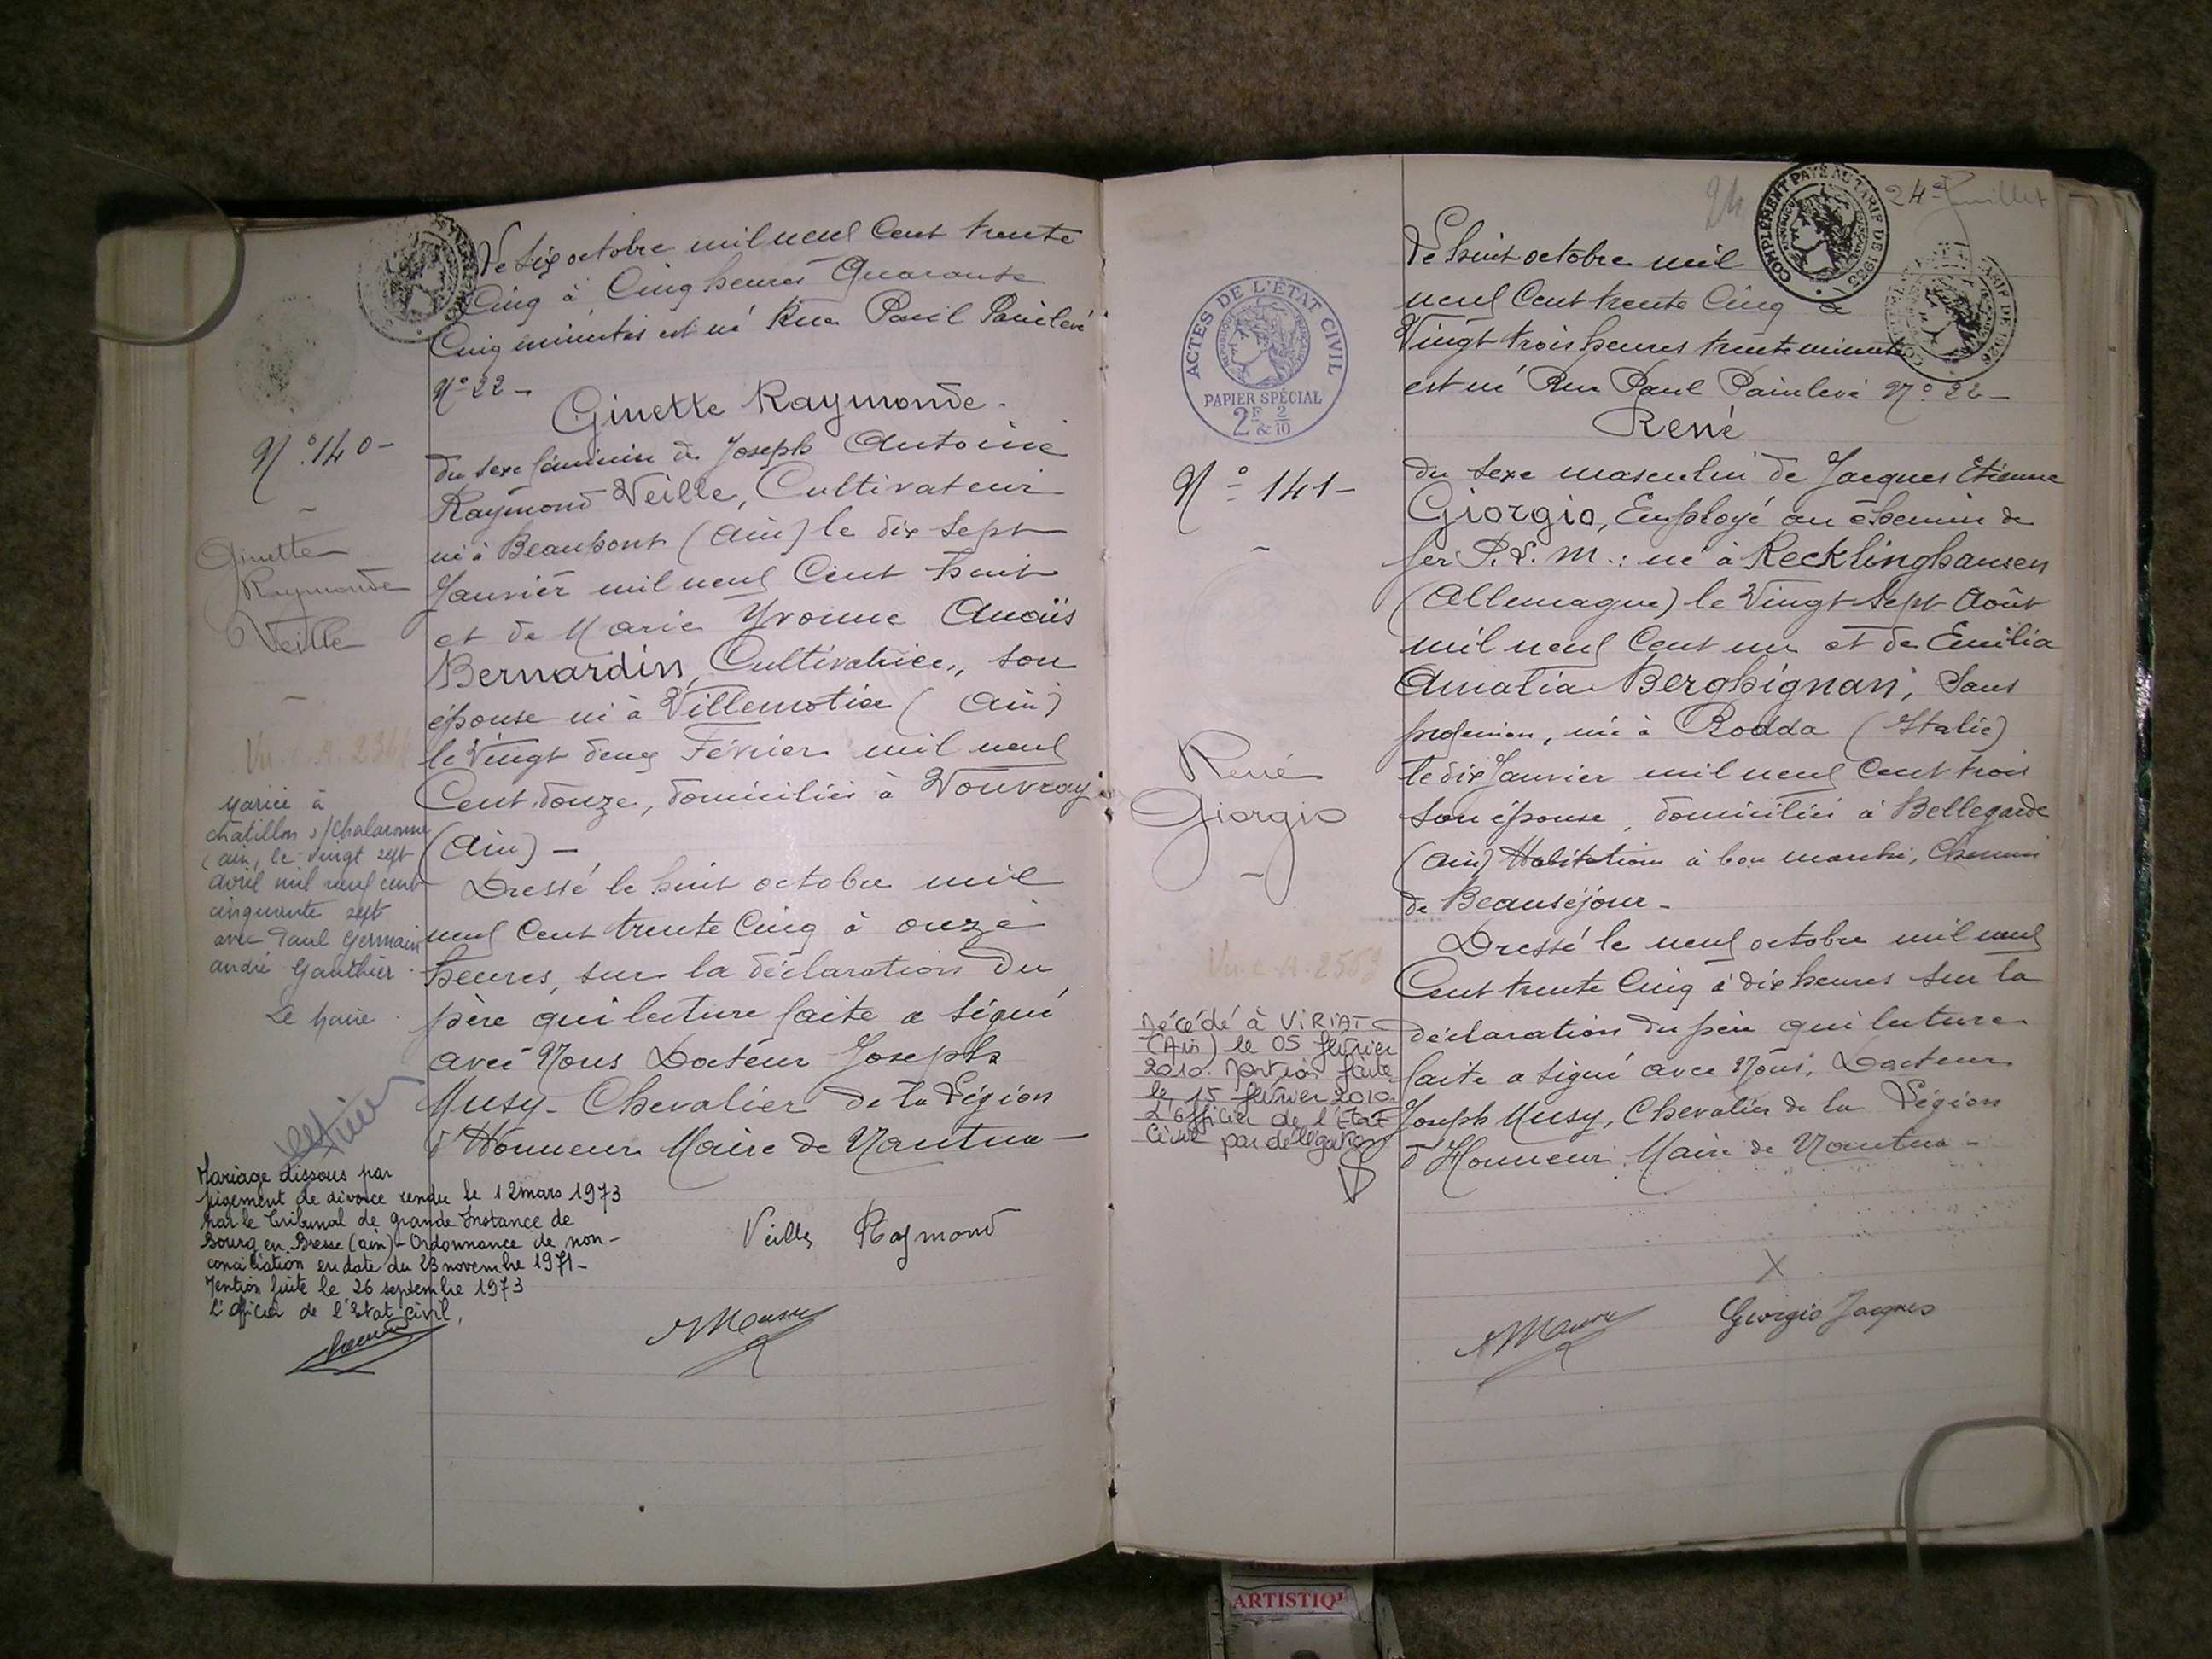 Le six octobre mil neuf Cent trente
Cinq à Cinq heures Quarante
Cinq minutes est né Rue Paul Painlevé
N° 22 -
Ginette Raymonde.
du sexe féminin de Joseph Antoine
Raymond Veille, Cultivateur
né à Beaupont (Ain) le dix sept
Janvier mil neuf Cent huit
et de Marie Yvonne Anaïs
Bernardin, Cultivatrice, son
épouse né à Villemotier (Ain)
le Vingt deux Février mil neuf
Cent douze, domiciliés à Vouvray
(Ain) -
Dressé le huit octobre mil
neuf Cent trente Cinq à onze
heures, sur la déclaration du
père qui lecture faite a signé
avec Nous Docteur Joseph
Musy - Chevalier de la Légion
d'Honneur Maire de Nantua -
Veille Raymond
N° 140 -
Ginette
Raymonde
Veille
Mariée à
chatillon s/Chalaronne
(ain, le vingt sept
avril mil neuf cent
cinquante sept
avec Paul Germain
andré Gauthier.
Le Maire.
Mariage dissous par
jugement de divorce rendu le 12 mars 1973
par le Tribunal de grande Instance de
Bourg en Bresse (ain) - Ordonnance de non-
conciliation en date du 23 novembre 1971 -
Mention faite le 26 septembre 1973
L'officier de l'Etat civil,
24
24e feuillet
COMPLÉMENT PAYÉ AU TARIF DE 1925
ACTES DE L'ÉTAT CIVIL
PAPIER SPÉCIAL
2F & 2/10
Le huit octobre mil
neuf Cent trente Cinq à
Vingt trois heures trente minutes
est né Rue Paul Painlevé N° 22 -
René
du sexe masculin de Jacques Etienne
Giorgio, Employé au chemin de
fer P.L.M.: né à Recklinghausen
(Allemagne) le Vingt sept Août
mil neuf Cent un et de Emilia
Amalia Berghignan, Sans
profession, née à Rodda (Italie)
le dix Janvier mil neuf Cent trois
son épouse, domiciliés à Bellegarde
(Ain) Habitation à bon marché, Chemin
de Beauséjour -
Dressé le neuf octobre mil neuf
Cent trente Cinq à dix heures sur la
déclaration du père qui lecture
faite a signé avec Nous, Docteur
Joseph Musy, Chevalier de la Légion
d'Honneur. Maire de Nantua -
X
Giorgio Jacques
N° 141 -
René
Giorgio
Décédé à VIRIAT
(Ain) le 05 février
2010. Mention faite
le 15 février 2010.
L'officier de l'Etat
Civil par délégation
ARTISTIQU